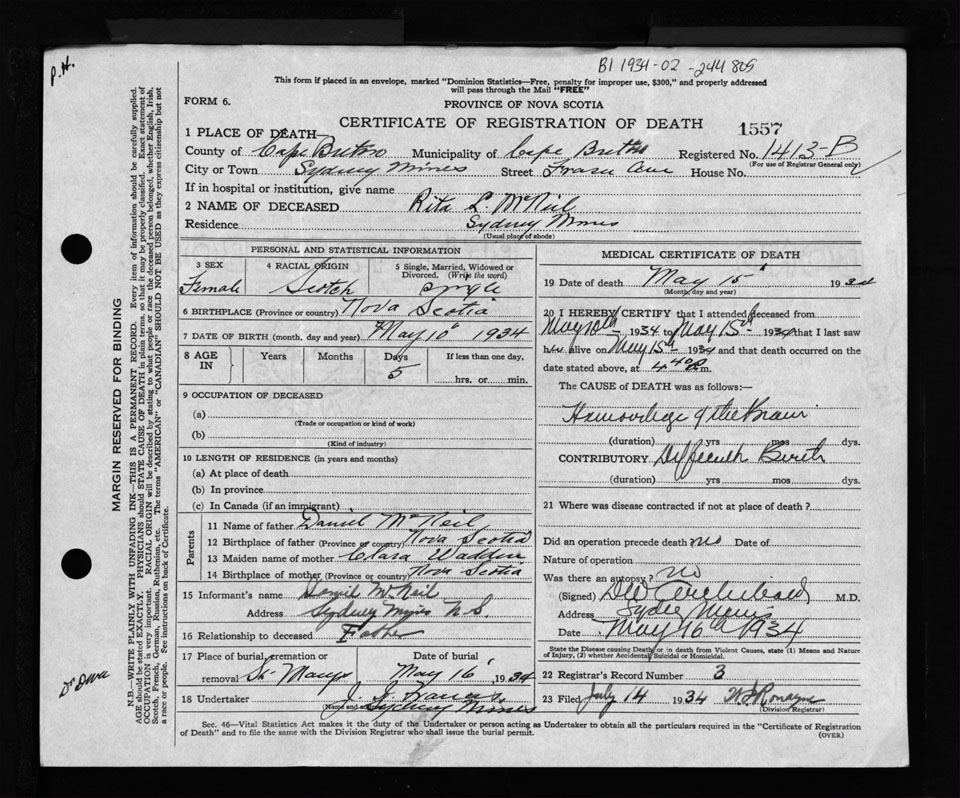 P.H.
B1 1934-02-244805
This form if placed in an envelope, marked "Dominion Statistics—Free, penalty for improper use, $300," and properly addressed
will pass through the Mail "FREE"
FORM 6.
PROVINCE OF NOVA SCOTIA
CERTIFICATE OF REGISTRATION OF DEATH
1557
1 PLACE OF DEATH
County of Cape Breton Municipality of Cape Breton Registered No. 1413-B
(For use of Registrar General only)
City or Town Sydney Mines Street Fraser Ave House No.
If in hospital or institution, give name
2 NAME OF DECEASED Rita L. McNeil
Residence Sydney Mines
(Usual place of abode)
PERSONAL AND STATISTICAL INFORMATION
3 SEX Female
4 RACIAL ORIGIN Scotch
5 Single, Married, Widowed or Divorced. (Write the word) Single
6 BIRTHPLACE (Province or country) Nova Scotia
7 DATE OF BIRTH (month, day and year) May 10th 1934
8 AGE IN Years Months Days 5 If less than one day, hrs. or min.
9 OCCUPATION OF DECEASED
(a)
(Trade or occupation or kind of work)
(b)
(Kind of industry)
10 LENGTH OF RESIDENCE (in years and months)
(a) At place of death
(b) In province
(c) In Canada (if an immigrant)
Parents
11 Name of father Daniel McNeil
12 Birthplace of father (Province or country) Nova Scotia
13 Maiden name of mother Clara Wadden
14 Birthplace of mother (Province or country) Nova Scotia
15 Informant's name Daniel McNeil
Address Sydney Mines N.S
16 Relationship to deceased Father
17 Place of burial, cremation or removal St. Marys Date of burial May 16 1934
18 Undertaker J. J.
Name and Address Sydney Mines
MEDICAL CERTIFICATE OF DEATH
19 Date of death May 15 1934
(Month, day and year)
20 I HEREBY CERTIFY that I attended deceased from
May 10th 1934 to May 15th 1934 that I last saw
her alive on May 15th 1934 and that death occurred on the
date stated above, at 4 40 P.m.
The CAUSE of DEATH was as follows:—
Hemorrhage of the Brain
(duration) yrs mos dys.
CONTRIBUTORY Difficult Birth
(duration) yrs mos dys.
21 Where was disease contracted if not at place of death?
Did an operation precede death no Date of
Nature of operation
Was there an autopsy? no
(Signed) Archibald M.D.
Address Sydney Mines
Date May 16th 1934
State the Disease causing Death, or in death from Violent Causes, state (1) Means and
Nature of Injury, (2) whether Accidental, Suicidal or Homicidal.
22 Registrar's Record Number 3
23 Filed July 14 1934 Ronayne
(Division Registrar)
Sec. 46—Vital Statistics Act makes it the duty of the Undertaker or person acting as Undertaker to obtain all the particulars required in the "Certificate of Registration
of Death" and to file the same with the Division Registrar who shall issue the burial permit. (OVER)
MARGIN RESERVED FOR BINDING
N.B.—WRITE PLAINLY WITH UNFADING INK—THIS IS A PERMANENT RECORD. Every item of information should be carefully supplied.
AGE should be stated EXACTLY. PHYSICIANS should STATE CAUSE OF DEATH in plain terms, so that it may be properly classified. Exact statement of
OCCUPATION is very important. RACIAL ORIGIN will be described by stating to what people or race the deceased person belonged, whether English, Irish,
Scotch, French, German, Russian, Ruthenian, etc. The terms "AMERICAN" or "CANADIAN" SHOULD NOT BE USED as they express citizenship but not
a race or people. See instructions on back of Certificate.